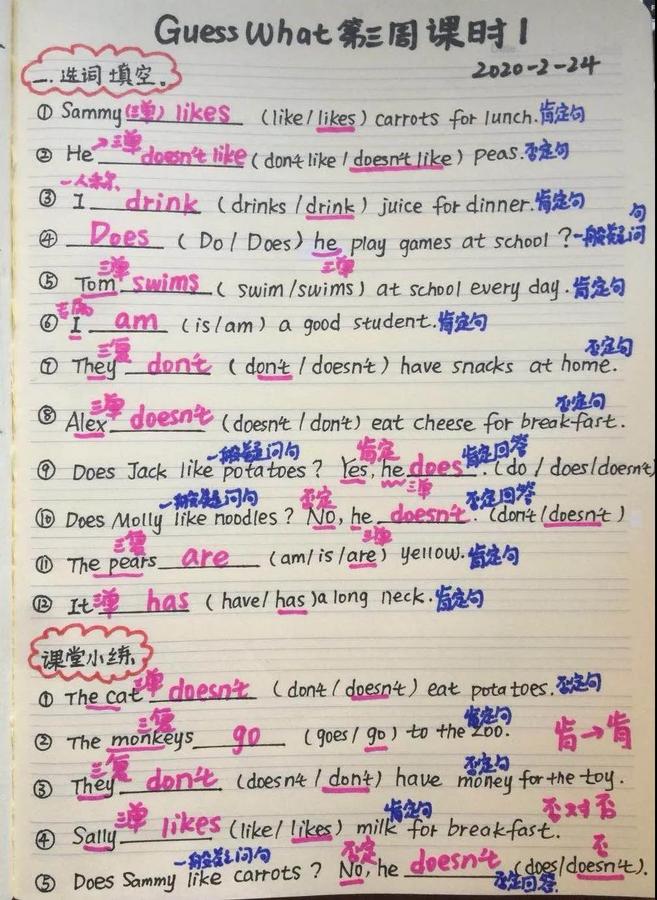 Guess What 第三周课时1
一. 选词填空。 2020-2-24
① Sammy (三单) likes (like/likes) carrots for lunch. 肯定句
② He →三单 doesn't like (don't like / doesn't like) peas. 否定句
一人称
③ I drink (drinks / drink) juice for dinner. 肯定句
④ Does (Do / Does) he play games at school? 一般疑问句
三单 三单
⑤ Tom swims (swim/swims) at school every day. 肯定句
⑥ I am (is/am) a good student. 肯定句
三复 否定句
⑦ They don't (don't / doesn't) have snacks at home.
三单 否定句
⑧ Alex doesn't (doesn't / don't) eat cheese for breakfast.
一般疑问句 肯定 肯定回答
⑨ Does Jack like potatoes? Yes, he does. (do / does/doesn't
一般疑问句 否定 三单 否定回答
⑩ Does Molly like noodles? No, he doesn't. (don't/doesn't)
三复 三单
⑪ The pears are (am/is/are) yellow. 肯定句
⑫ It 三单 has (have/has) a long neck. 肯定句
课堂小练
① The cat 三单 doesn't (don't / doesn't) eat potatoes. 否定句
三复 肯定句
② The monkeys go (goes/go) to the zoo. 肯→肯
三复 否定句
③ They don't (doesn't / don't) have money for the toy.
三单 肯定句 否对否
④ Sally likes (like/likes) milk for breakfast.
一般疑问句 否定 否
⑤ Does Sammy like carrots? No, he doesn't (does/doesn't).
否定回答